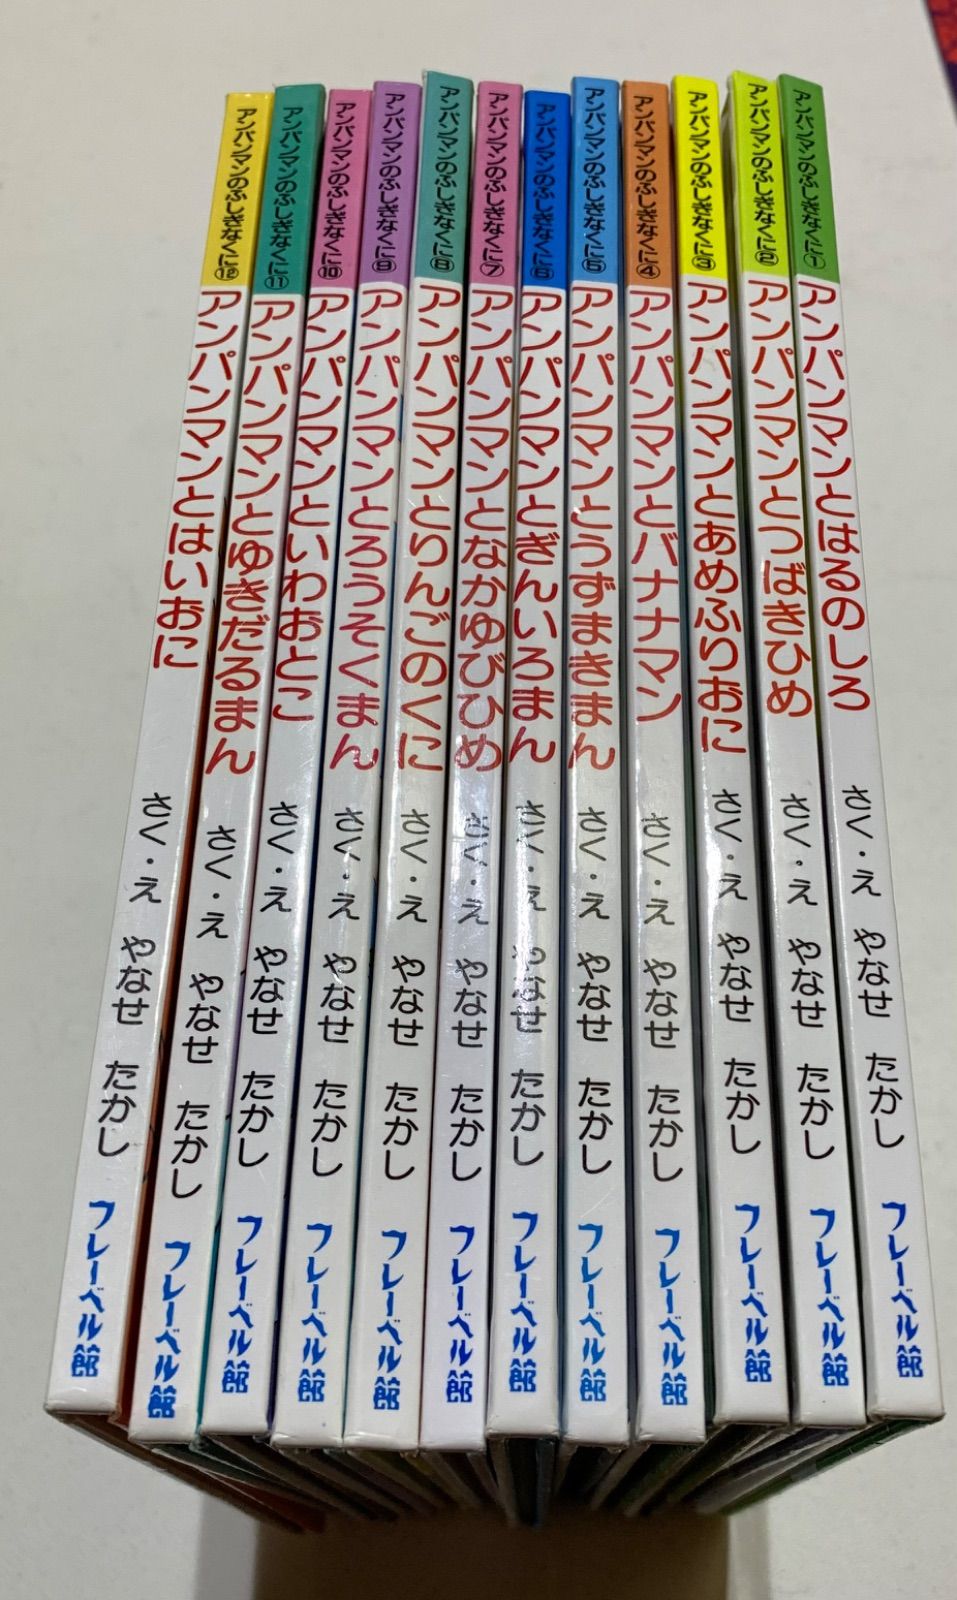 アンパンマンのふしぎなくに①
アンパンマンとはるのしろ
さく・え やなせ たかし
フレーベル館
アンパンマンのふしぎなくに②
アンパンマンとつばきひめ
さく・え やなせ たかし
フレーベル館
アンパンマンのふしぎなくに③
アンパンマンとあめふりおに
さく・え やなせ たかし
フレーベル館
アンパンマンのふしぎなくに④
アンパンマンとバナナマン
さく・え やなせ たかし
フレーベル館
アンパンマンのふしぎなくに⑤
アンパンマンとうずまきまん
さく・え やなせ たかし
フレーベル館
アンパンマンのふしぎなくに⑥
アンパンマンとぎんいろまん
さく・え やなせ たかし
フレーベル館
アンパンマンのふしぎなくに⑦
アンパンマンとなかゆびひめ
さく・え やなせ たかし
フレーベル館
アンパンマンのふしぎなくに⑧
アンパンマンとりんごのくに
さく・え やなせ たかし
フレーベル館
アンパンマンのふしぎなくに⑨
アンパンマンとろうそくまん
さく・え やなせ たかし
フレーベル館
アンパンマンのふしぎなくに⑩
アンパンマンといわおとこ
さく・え やなせ たかし
フレーベル館
アンパンマンのふしぎなくに⑪
アンパンマンとゆきだるまん
さく・え やなせ たかし
フレーベル館
アンパンマンのふしぎなくに⑫
アンパンマンとはいおに
さく・え やなせ たかし
フレーベル館